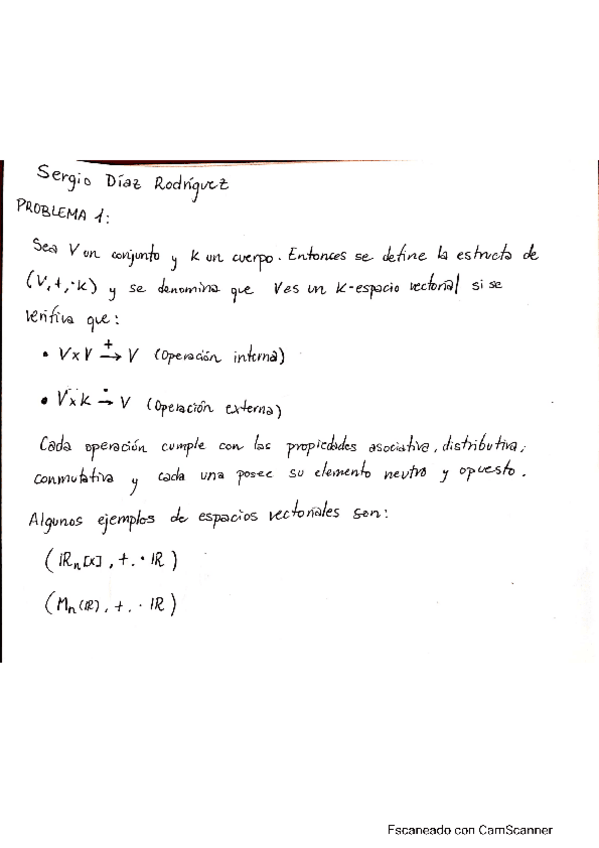 Sergio Díaz Rodríguez
PROBLEMA 1:
Sea V un conjunto y K un cuerpo. Entonces se define la estructa de
(V, +, ·K) y se denomina que V es un K-espacio vectorial si se
verifica que:
• V×V →⁺ V (Operación interna)
• V×K →˙ V (Operación externa)
Cada operación cumple con las propiedades asociativa, distributiva,
conmutativa y cada una posee su elemento neutro y opuesto.
Algunos ejemplos de espacios vectoriales son:
(ℝₙ[x], +, · ℝ)
(Mₙ(ℝ), +, · ℝ)
Escaneado con CamScanner